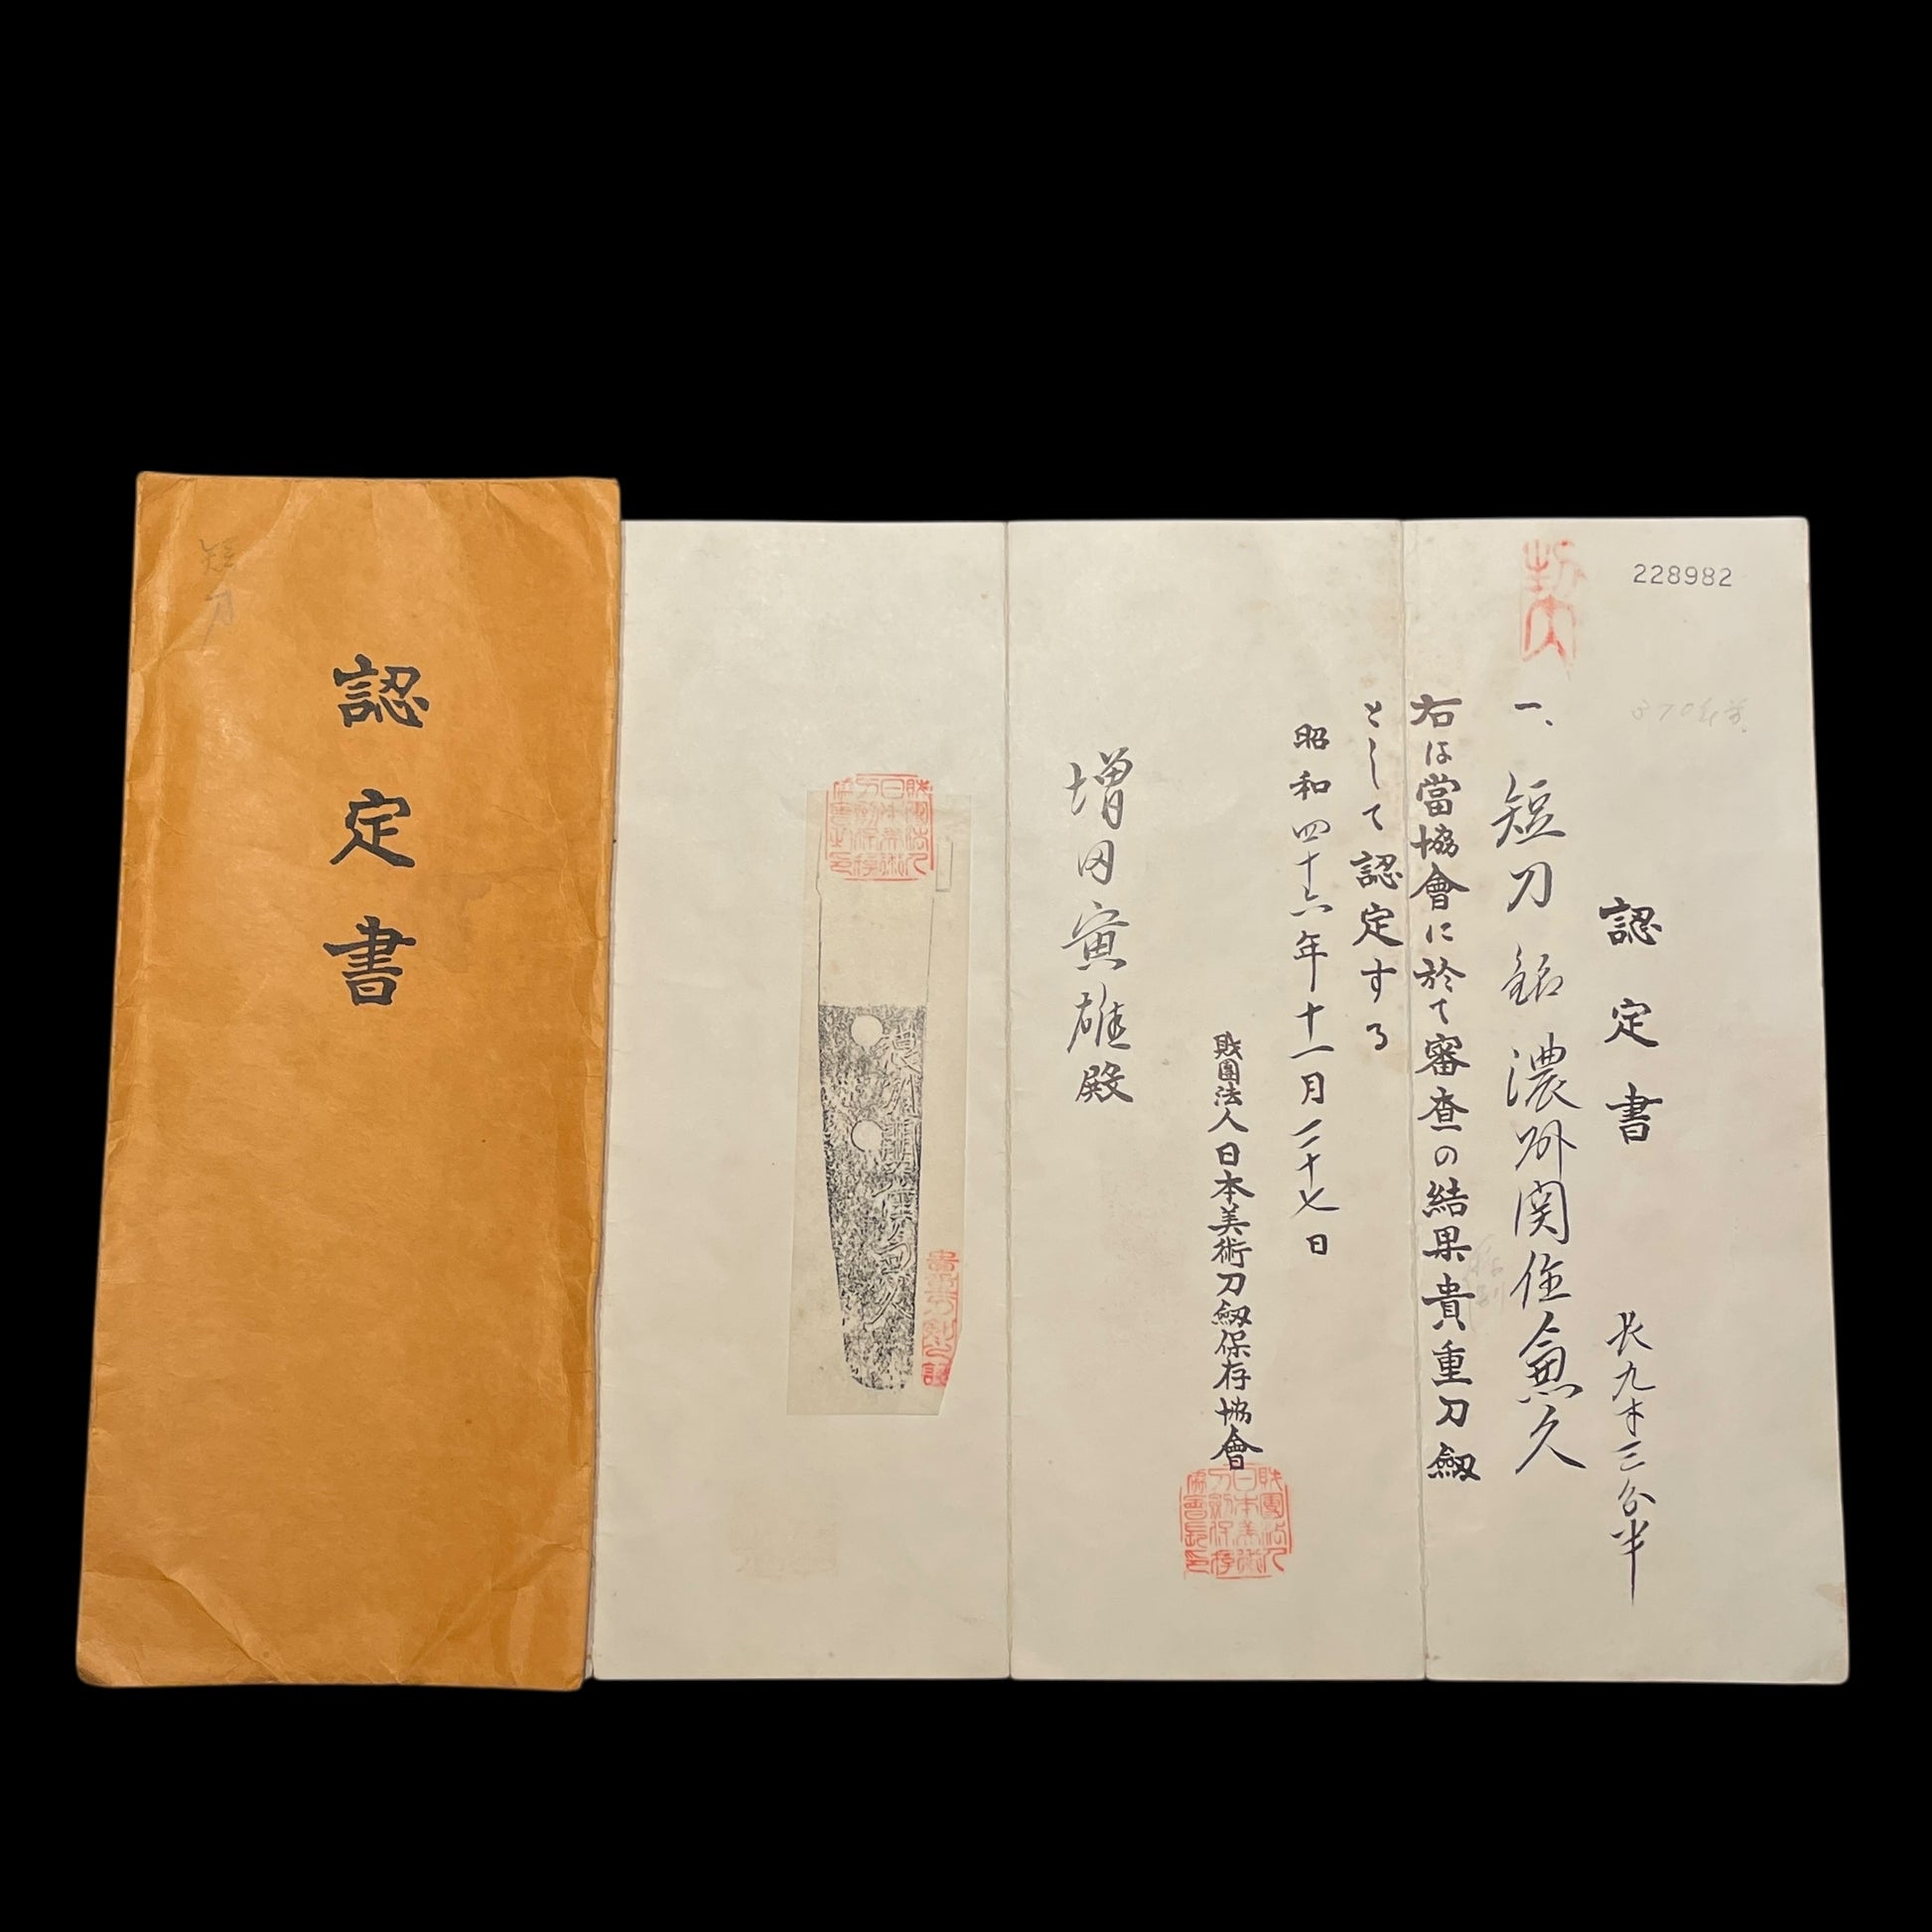 228982
認定書
長九寸三分半
一、短刀 銘 濃州関住兼久
右は當協會に於て審査の結果貴重刀劔
として認定する
昭和四十六年十一月二十七日
財團法人日本美術刀劔保存協會
増田寅雄殿
濃州関住兼久
認定書
短刀